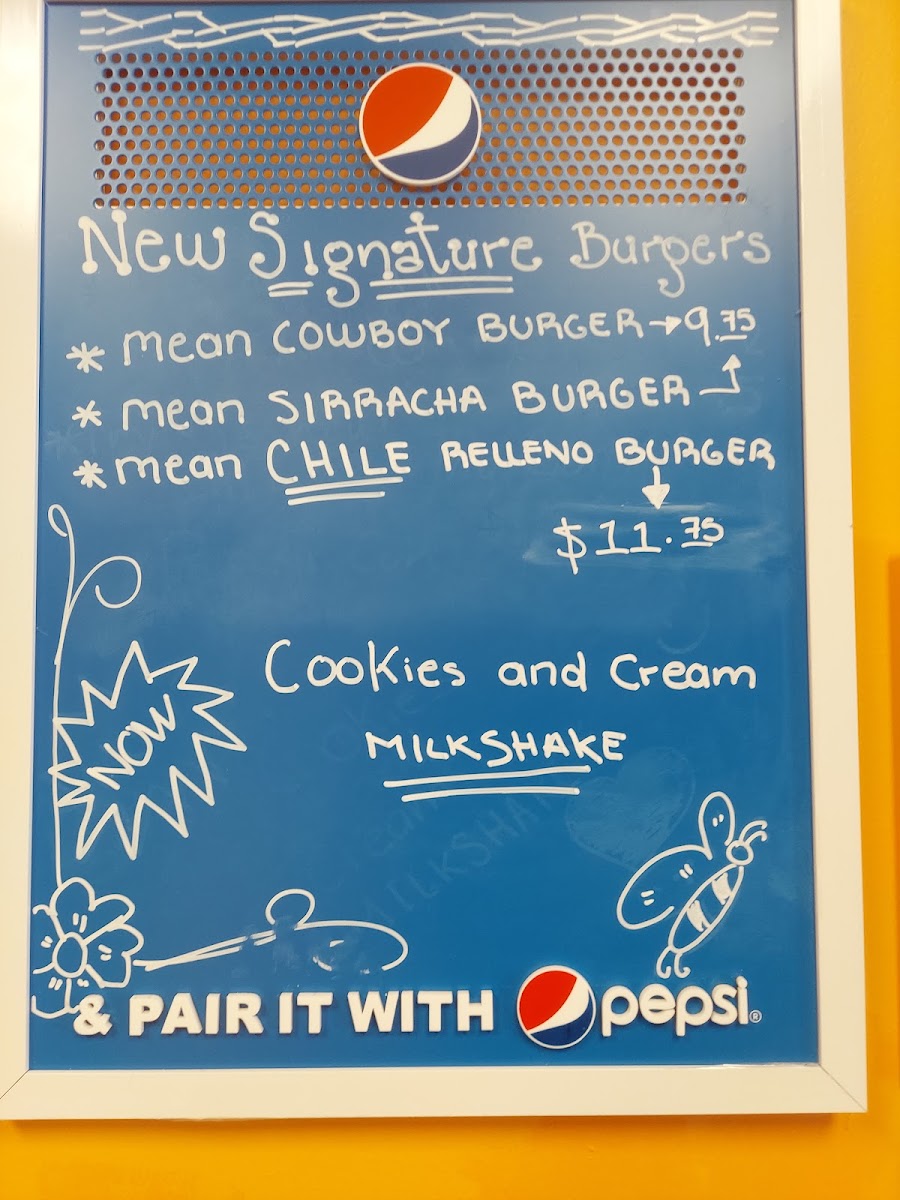 New Signature Burgers
* mean COWBOY BURGER → 9.75
* mean SIRRACHA BURGER
* mean CHILE RELLENO BURGER
$11.75
Cookies and Cream
NOW
MILKSHAKE
MILKSHAKE
& PAIR IT WITH pepsi®